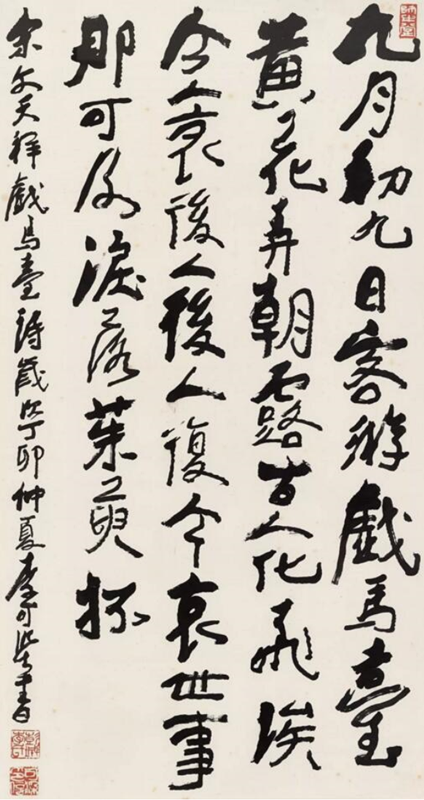 九月初九日客游戲馬臺
黄花弄朝露古人化飛埃
今人哀後人後人復今哀世事
那可及淚落茱萸杯
宋文天祥戲馬臺詩歲次丁卯仲夏康可柴書